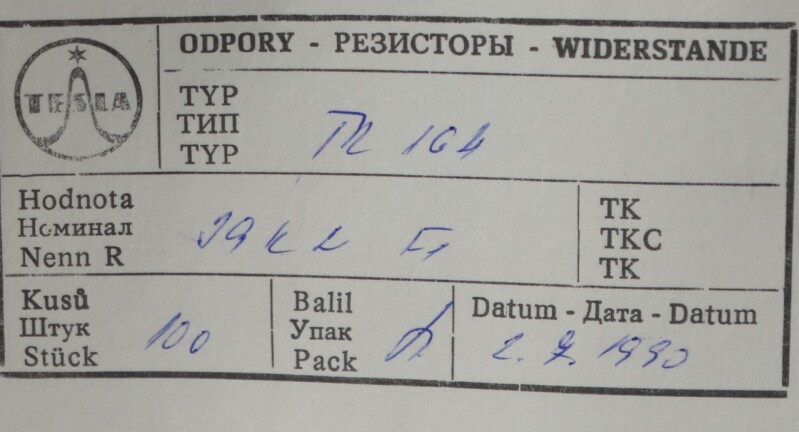 ODPORY - РЕЗИСТОРЫ - WIDERSTANDE
TESLA
TYP
ТИП TR 164
TYP
Hodnota
Номинал
Nenn R
TK
TKC
TK
Kusů
Штук 100
Stück
Balil
Упак
Pack
Datum - Дата - Datum
2. 7. 1990